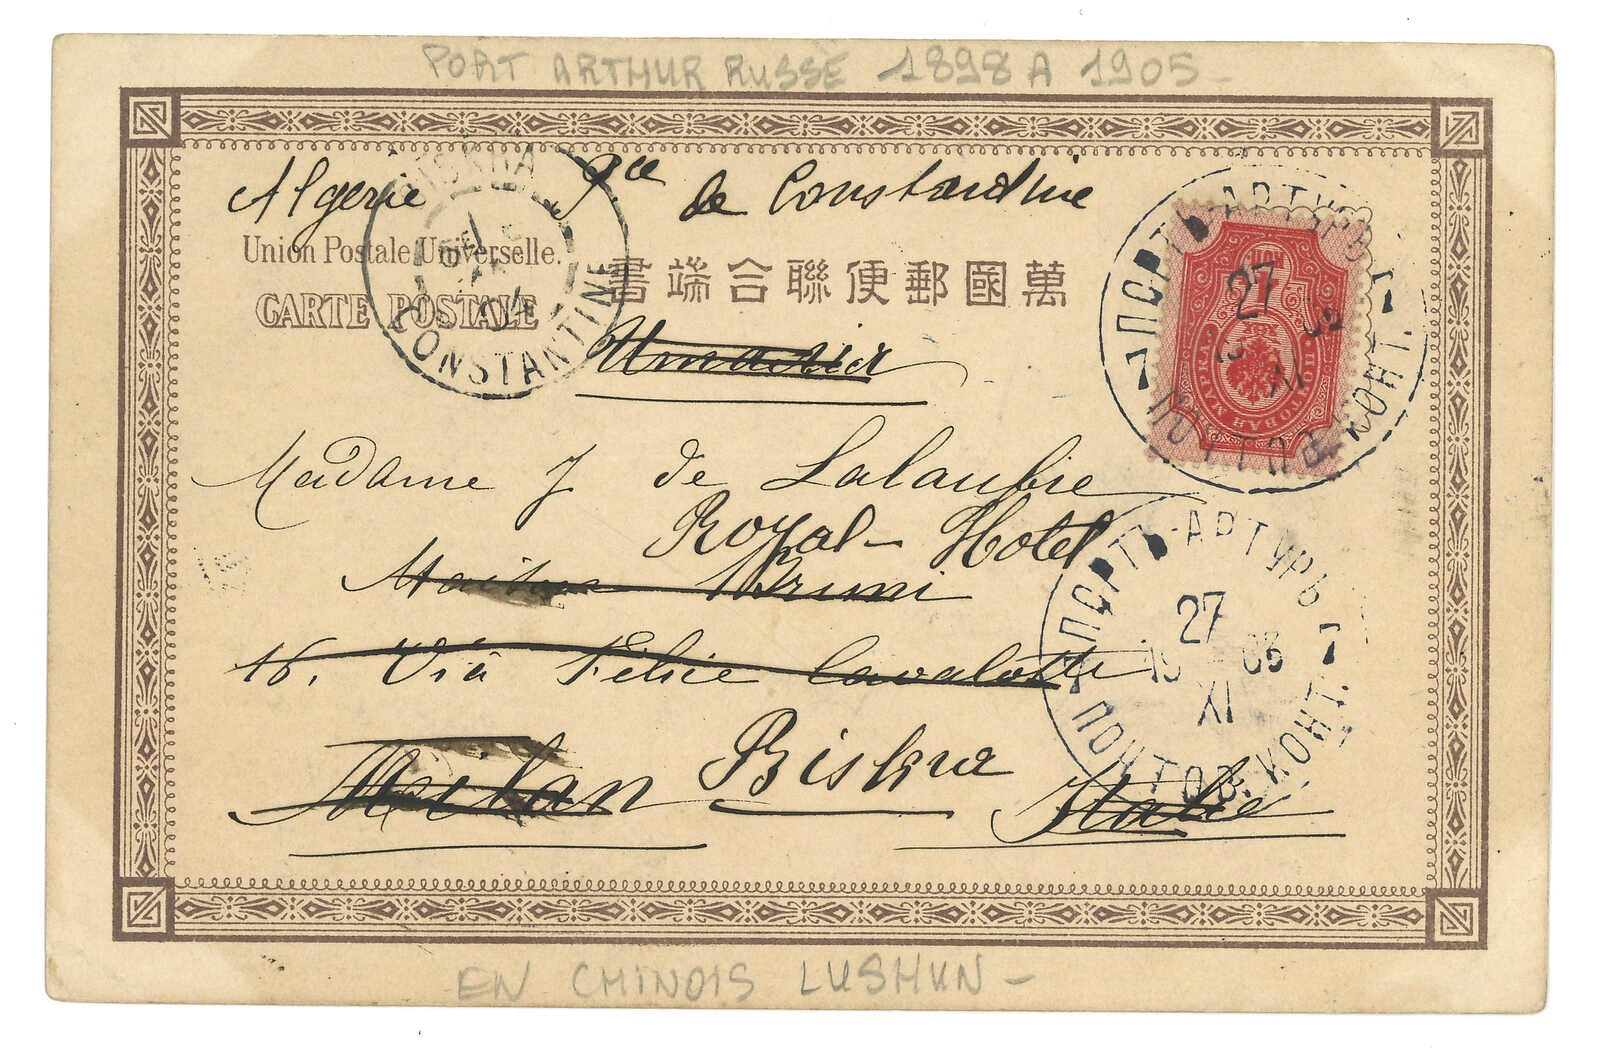 PORT ARTHUR RUSSE 1898 A 1905 -
Algerie Pce de Constantine
Union Postale Universelle.
CARTE POSTALE
萬國郵便聯合端書
BISKRA
04
CONSTANTINE
ПОРТЪ-АРТУРЪ
27
XI
ПОЧТОВ. КОНТ.
7 7
ПОЧТОВАЯ МАРКА
Madame J de Lalaubie
Royal-Hotel
Bruni
16. Via Felice Cavalotti
Milan Biskra Italie
ПОРТЪ-АРТУРЪ
27
19 03
XI
7 7
ПОЧТОВ. КОНТ.
EN CHINOIS LUSHUN -